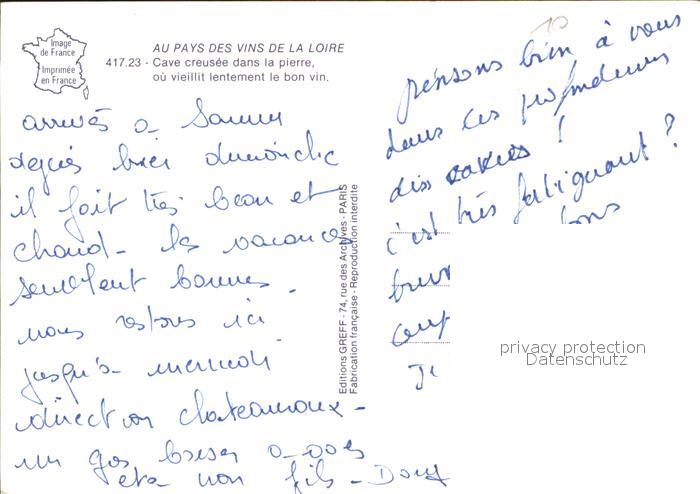 Image
de France
Imprimée
en France
AU PAYS DES VINS DE LA LOIRE
417.23 - Cave creusée dans la pierre,
où vieillit lentement le bon vin.
arrivés à
depuis hier dimanche
il fait très beau et
chaud - les vacances
semblent bonnes.
nous restons ici
jusqu'à mercredi
direction chateauroux -
un gros baiser à
et à mon fils -
Editions GREFF - 74, rue des Archives - PARIS
Fabrication française - Reproduction interdite
pensons bien à vous
dans les profondeurs
des caves !
c'est très fatiguant ?
privacy protection
Datenschutz